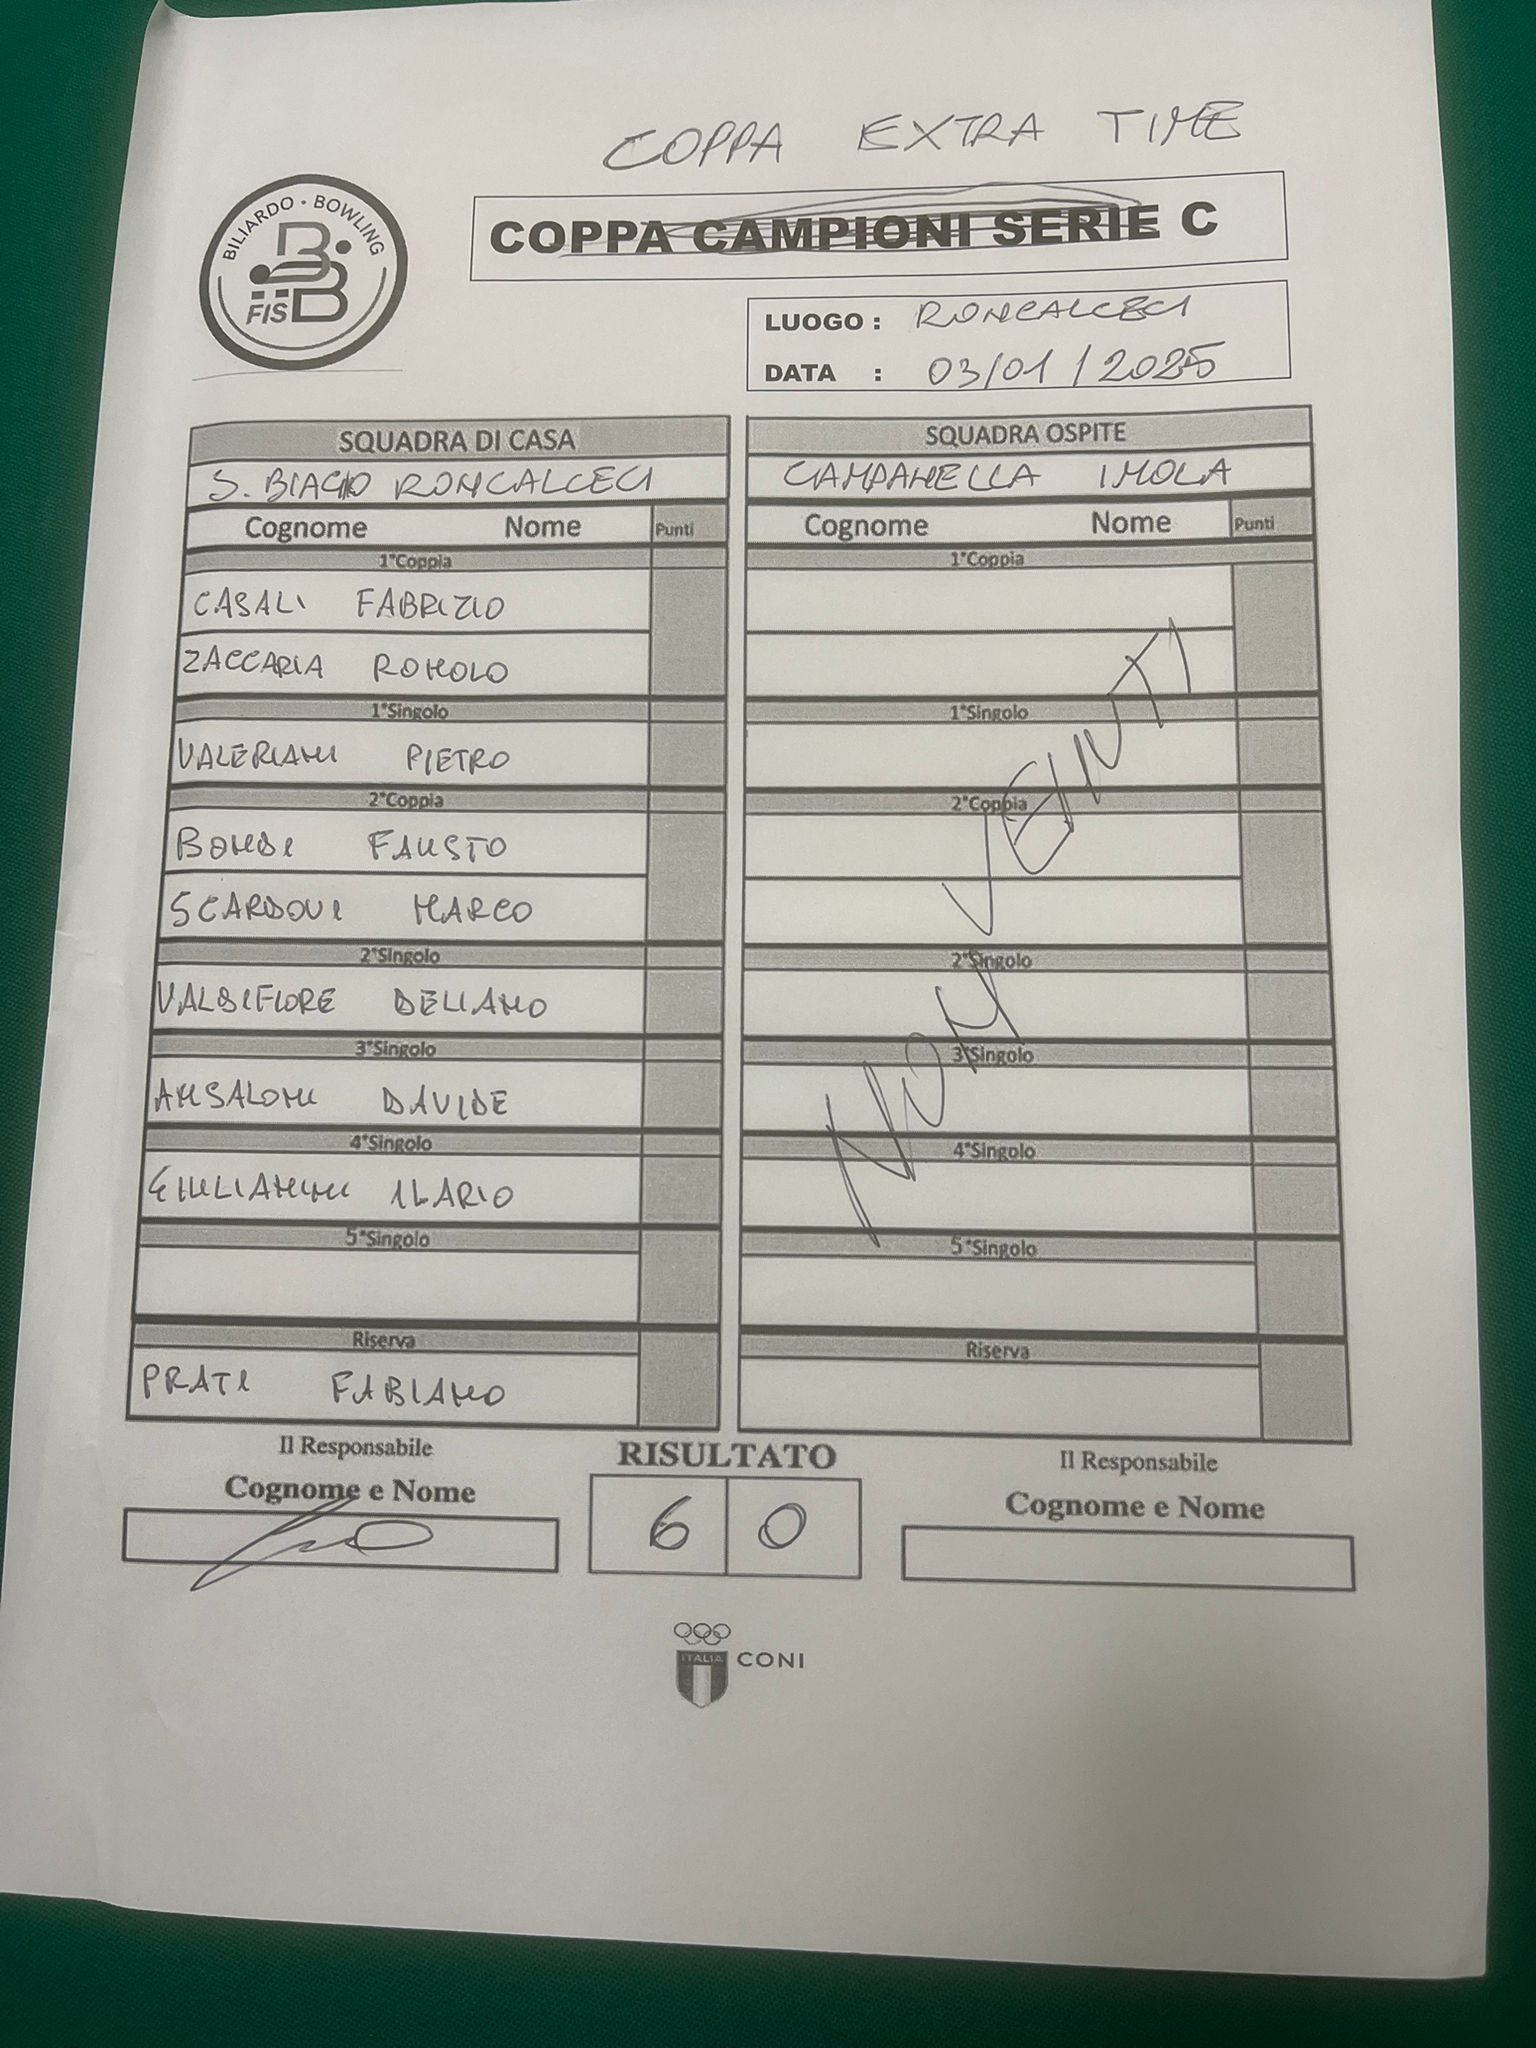 COPPA EXTRA TIME
BILIARDO • BOWLING
FISBB
COPPA CAMPIONI SERIE C
LUOGO : RONCALCECI
DATA : 03/01/2025
SQUADRA DI CASA
SQUADRA OSPITE
S. BIAGIO RONCALCECI
CAMPANELLA IMOLA
Cognome Nome Punti
Cognome Nome Punti
1°Coppia
1°Coppia
CASALI FABRIZIO
ZACCARIA ROMOLO
1°Singolo
1°Singolo
VALERIANI PIETRO
2°Coppia
2°Coppia
BONDI FAUSTO
SCARDOVI MARCO
2°Singolo
2°Singolo
VALDIFIORE DELIANO
3°Singolo
3°Singolo
ANSALONI DAVIDE
4°Singolo
4°Singolo
GIULIANINI ILARIO
5°Singolo
5°Singolo
NON VENUTI
Riserva
Riserva
PRATI FABIANO
Il Responsabile
RISULTATO
Il Responsabile
Cognome e Nome
Cognome e Nome
6 0
ITALIA
CONI